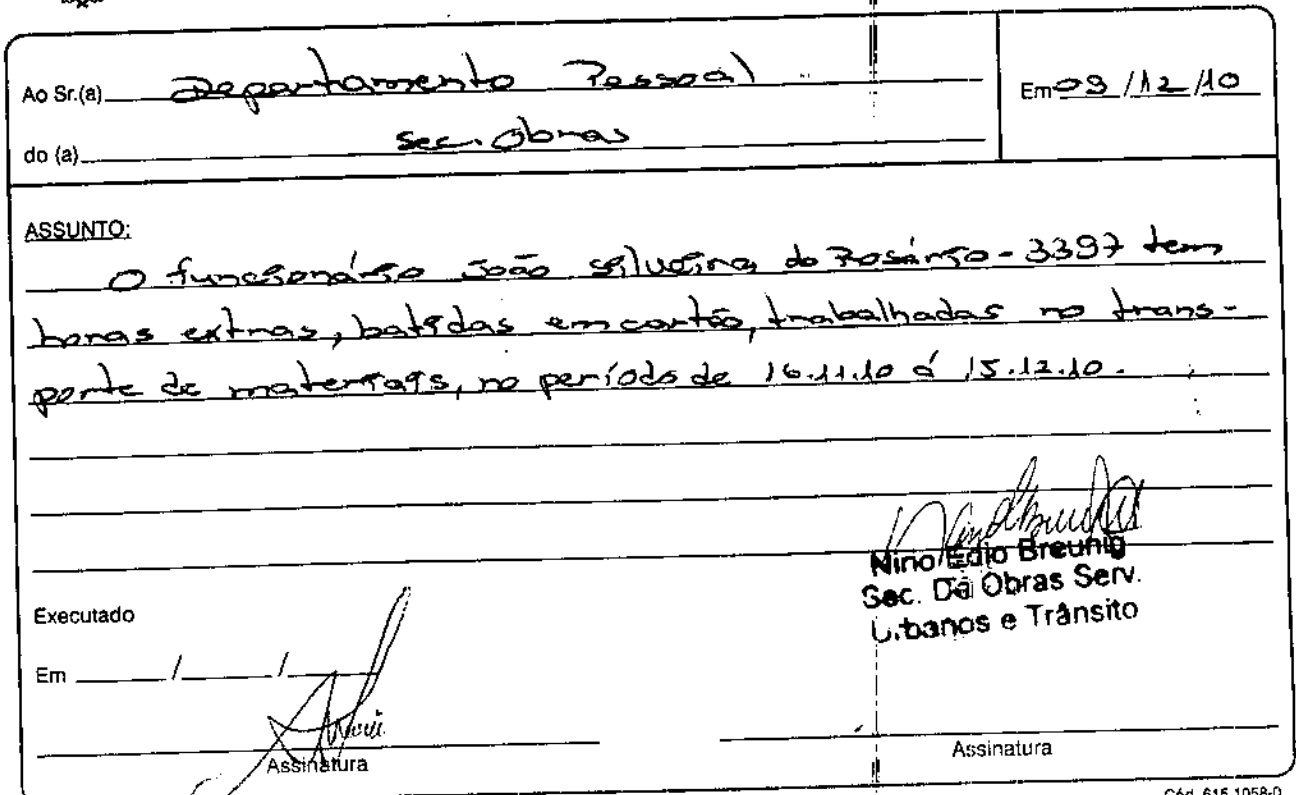 Ao Sr.(a) Departamento Pessoal
Em 09/12/10
do (a) Sec. Obras
ASSUNTO:
O funcionário João Silveira do Rosário - 3397 tem
horas extras, batidas em cartão, trabalhadas no trans-
porte de materiais, no período de 16.11.10 á 15.12.10.
Nino Edio Breunig
Sec. De Obras Serv.
Urbanos e Trânsito
Executado
Em / /
Assinatura
Assinatura
Cód. 615.1058-0